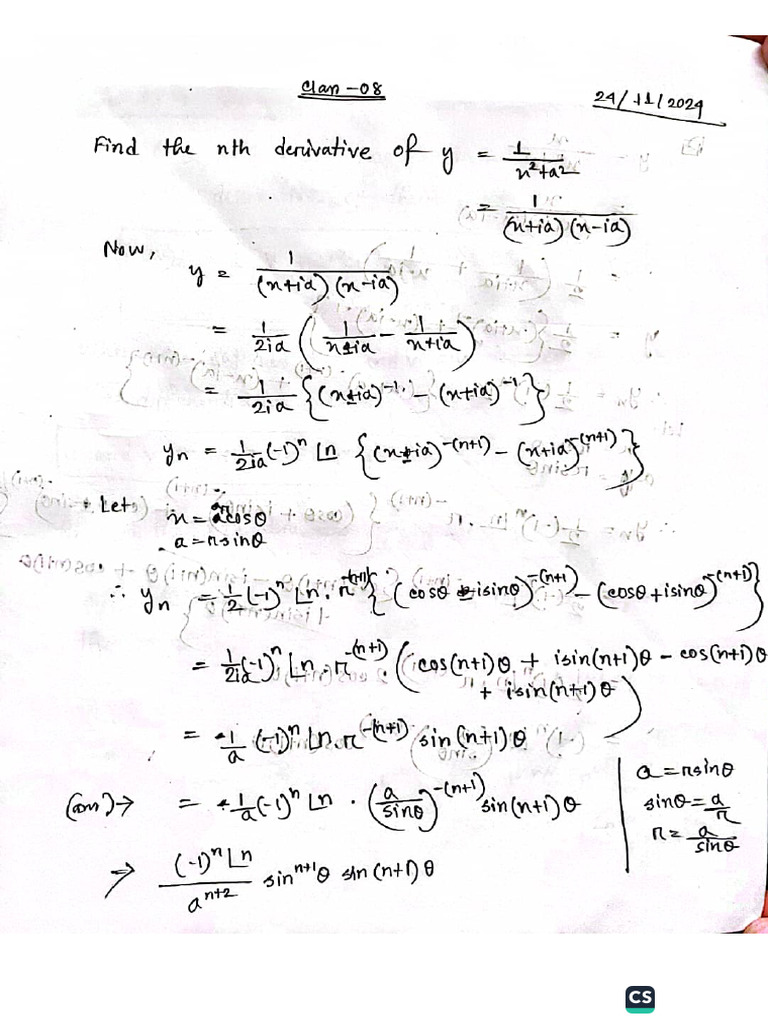 Clan -08
24/11/2024
Find the nth derivative of y = 1/(x²+a²)
= 1/((x+ia)(x-ia))
Now,
y = 1/((x+ia)(x-ia))
= 1/2ia (1/(x-ia) - 1/(x+ia))
= 1/2ia {(x-ia)^-1 - (x+ia)^-1}
yn = 1/2ia (-1)^n ⌊n {(x-ia)^-(n+1) - (x+ia)^-(n+1)}
Let x = rcosθ
a = rsinθ
∴ yn = 1/2 (-1)^n ⌊n. r^-(n+1) {(cosθ - isinθ)^-(n+1) - (cosθ+isinθ)^-(n+1)}
= 1/2ia (-1)^n ⌊n. r^-(n+1). (cos(n+1)θ + isin(n+1)θ - cos(n+1)θ
+ isin(n+1)θ)
= 1/a (-1)^n ⌊n r^-(n+1) sin(n+1)θ
(ans)→ = 1/a (-1)^n ⌊n . (a/sinθ)^-(n+1) sin(n+1)θ
a = rsinθ
sinθ = a/r
r = a/sinθ
⇒ (-1)^n ⌊n / a^(n+2) sin^(n+1)θ sin(n+1)θ
CS